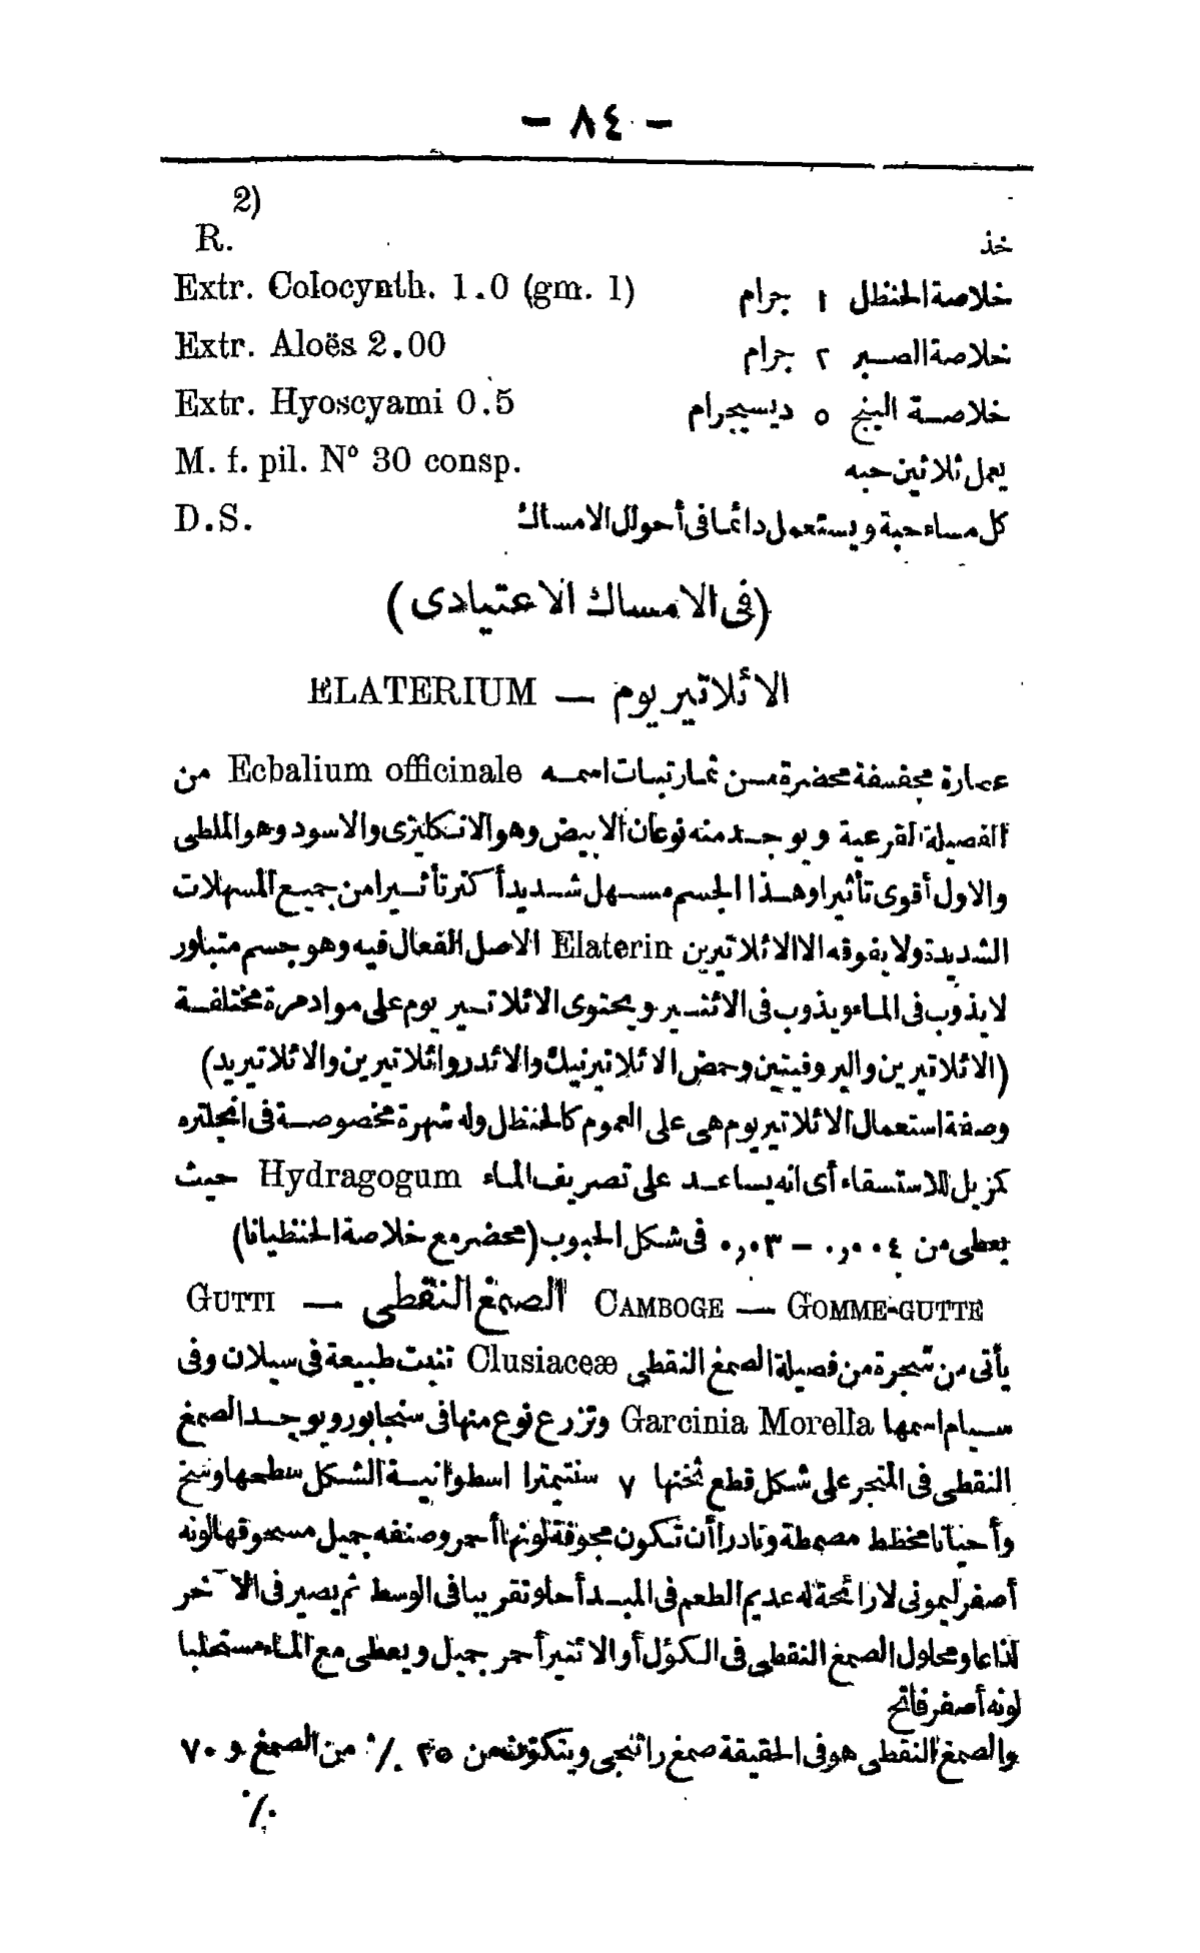 - ٨٤ -
2)
R. خذ
Extr. Colocynth. 1.0 (gm. 1) خلاصة الحنظل ١ جرام
Extr. Aloës 2.00 خلاصة الصبر ٢ جرام
Extr. Hyoscyami 0.5 خلاصة البنج ٥ ديسيجرام
M. f. pil. N° 30 consp. يعمل ثلاثين حبه
D.S. كل مساء حبة ويستعمل دائما فى أحوال الامساك
(فى الامساك الاعتيادى)
الائلاتيريوم — ELATERIUM
عصارة مجففة محضرة من ثمار نبات اسمه Ecbalium officinale من
الفصيلة القرعية ويوجد منه نوعان الابيض وهو الانكليزى والاسود وهو المالطى
والاول أقوى تأثيرا وهذا الجسم مسهل شديد أكثر تأثيرا من جميع المسهلات
الشديدة ولا يفوقه الا الائلاتيرين Elaterin الاصل الفعال فيه وهو جسم متبلور
لا يذوب فى الماء ويذوب فى الائتير ويحتوى الائلاتيريوم على مواد مرة مختلفة
(الائلاتيرين والبروفيتين وحمض الائلاتيرنيك والائدروائلاتيرين والائلاتيريد)
وصفة استعمال الائلاتيريوم هى على العموم كالحنظل وله شهرة مخصوصة فى انجلتره
كمزيل للاستسقاء أى انه يساعد على تصريف الماء Hydragogum حيث
يعطى من ٠,٠٠٤ – ٠,٠٣ فى شكل الحبوب (محضر مع خلاصة الجنطيانا)
GUTTI — الصمغ النقطى CAMBOGE — GOMME-GUTTE
يأتى من شجرة من فصيلة الصمغ النقطى Clusiaceæ تنبت طبيعة فى سيلان وفى
سيام اسمها Garcinia Morella وتزرع نوع منها فى سنجابور ويوجد الصمغ
النقطى فى المتجر على شكل قطع ثخنها ٧ سنتيمترا اسطوانية الشكل سطحها وسخ
وأحيانا مخطط مصمطة ونادرا أن تكون مجوفة لونها أحمر وصنفه جميل مسحوقها لونه
أصفر ليمونى لا رائحة له عديم الطعم فى المبدأ حلو تقريبا فى الوسط ثم يصير فى الآخر
لذاعا ومحلول الصمغ النقطى فى الكؤل أو الائتير أحمر جميل ويعطى مع الماء مستحلبا
لونه أصفر فاتح
والصمغ النقطى هو فى الحقيقة صمغ راتنجى ويتكون من ٢٥ ٪ من الصمغ و ٧٠
٪